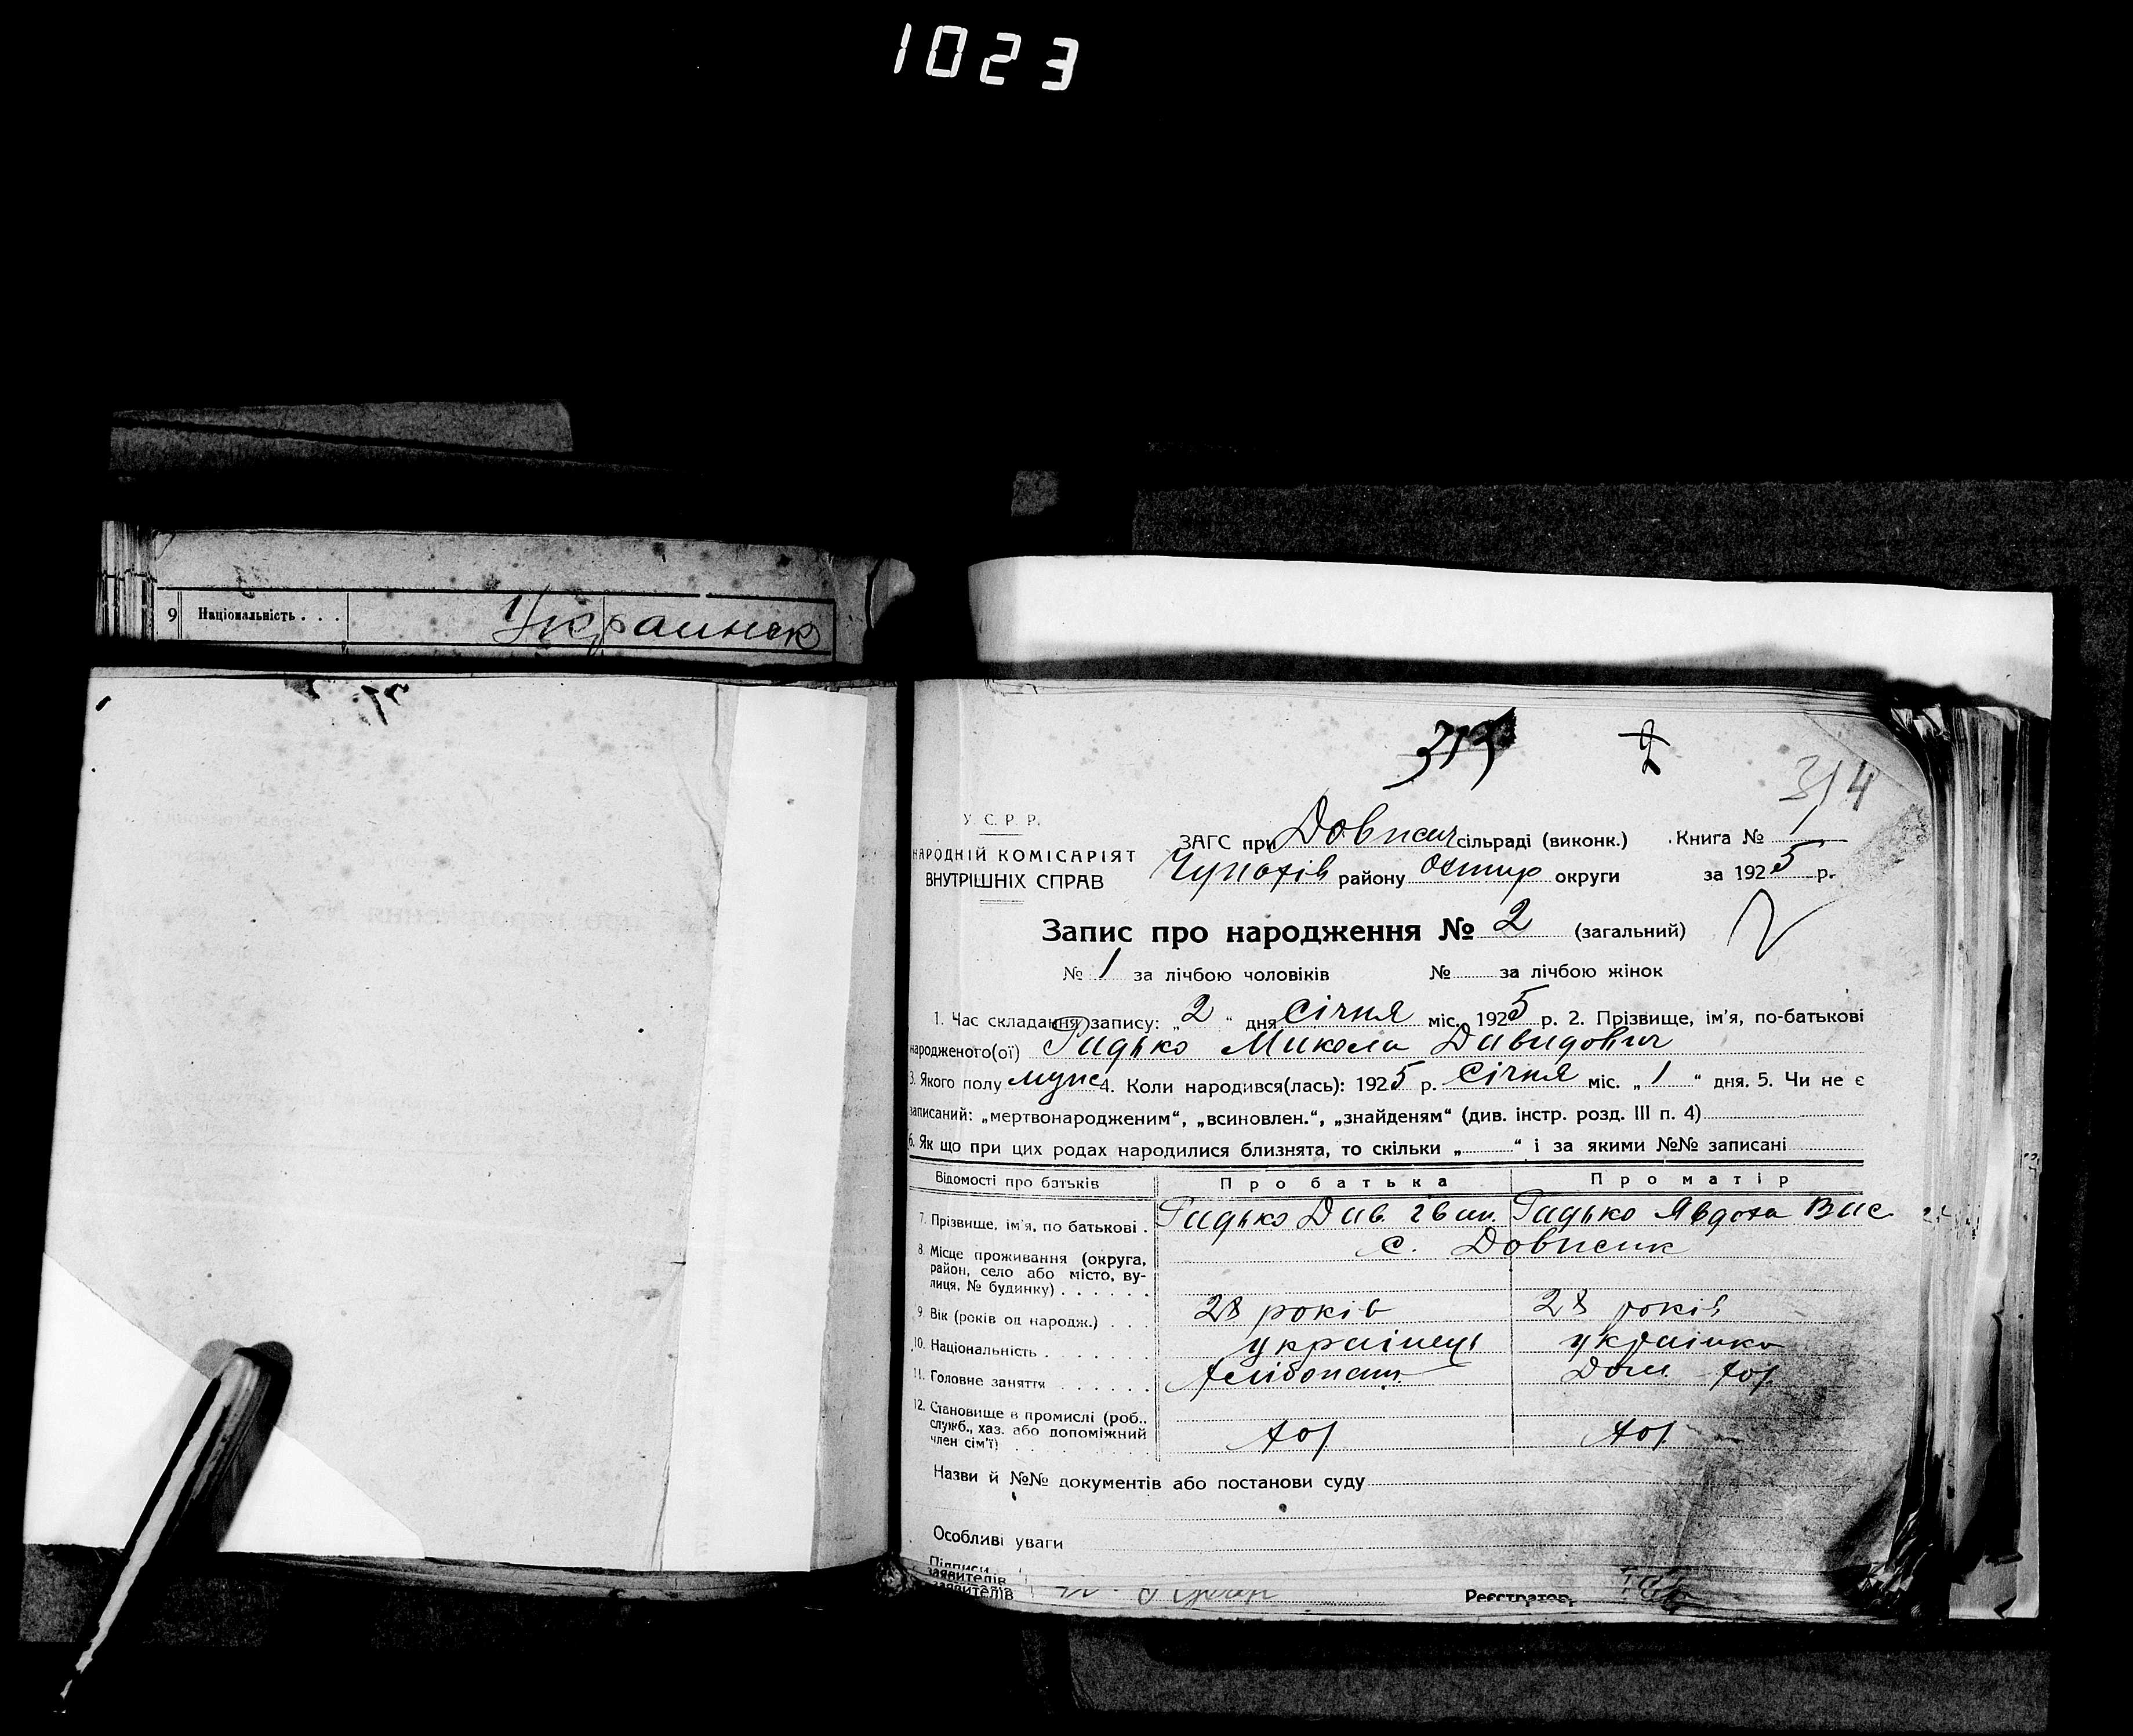 1023
9 Національність . . . Украинск
313
2
314
У. С. Р. Р.
НАРОДНІЙ КОМІСАРІЯТ
ВНУТРІШНІХ СПРАВ
ЗАГС при Довжич сільраді (виконк.) Книга № 1
Чупахів району Охтир округи за 1925 р.
Запис про народження № 2 (загальний)
№ 1 за лічбою чоловіків № за лічбою жінок
1. Час складання запису: „2“ дня Січня міс. 1925 р. 2. Прізвище, ім'я, по-батькові
народженого(ої) Гидько Микола Давидович
3. Якого полу муж 4. Коли народився(лась): 1925 р. Січня міс. „1“ дня. 5. Чи не є
записаний: „мертвонародженим“, „всиновлен.“, „знайденям“ (див. інстр. розд. III п. 4)
6. Як що при цих родах народилися близнята, то скільки „ “ і за якими №№ записані
Відомості про батьків Про батька Про матір
7. Прізвище, ім'я, по батькові . Гидько Дав. Іван. Гидько Явдоха Вас
8. Місце проживання (округа, с. Довжик
район, село або місто, ву-
лиця, № будинку) . . . . . .
9. Вік (років од народж.) . . . 28 років 28 років
10. Національність . . . . . . . українець українка
11. Головне заняття . . . . . . Хлібопаш. Дом. хоз
12. Становище в промислі (роб.,
служб., хаз. або допоміжний
член сім'ї) . . . хоз хоз
Назви й №№ документів або постанови суду
Особливі уваги
Підписи
заявителів
заявителів Реєстратор